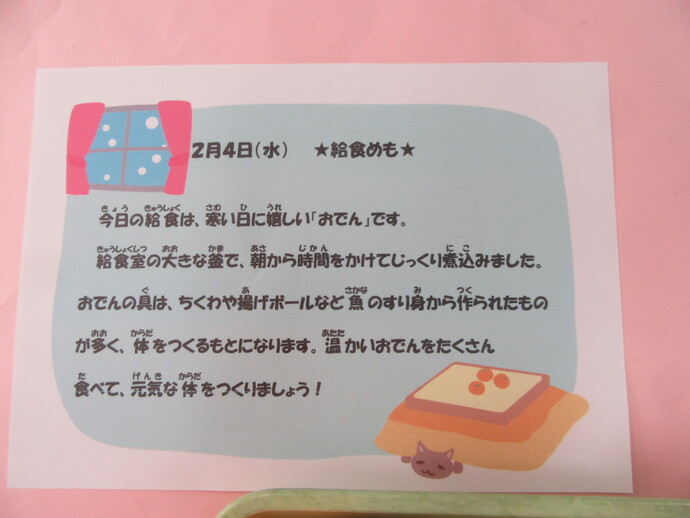 2月4日(水)　★給食めも★
今日の給食は、寒い日に嬉しい「おでん」です。
給食室の大きな釜で、朝から時間をかけてじっくり煮込みました。
おでんの具は、ちくわや揚げボールなど魚のすり身から作られたもの
が多く、体をつくるもとになります。温かいおでんをたくさん
食べて、元気な体をつくりましょう！